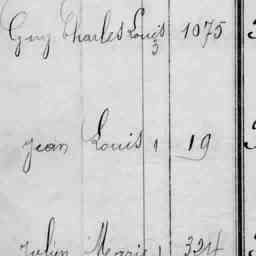 Guy Charles Louis 3 1075 3
Jean Louis 1 19 3
Julien Marie 1 324